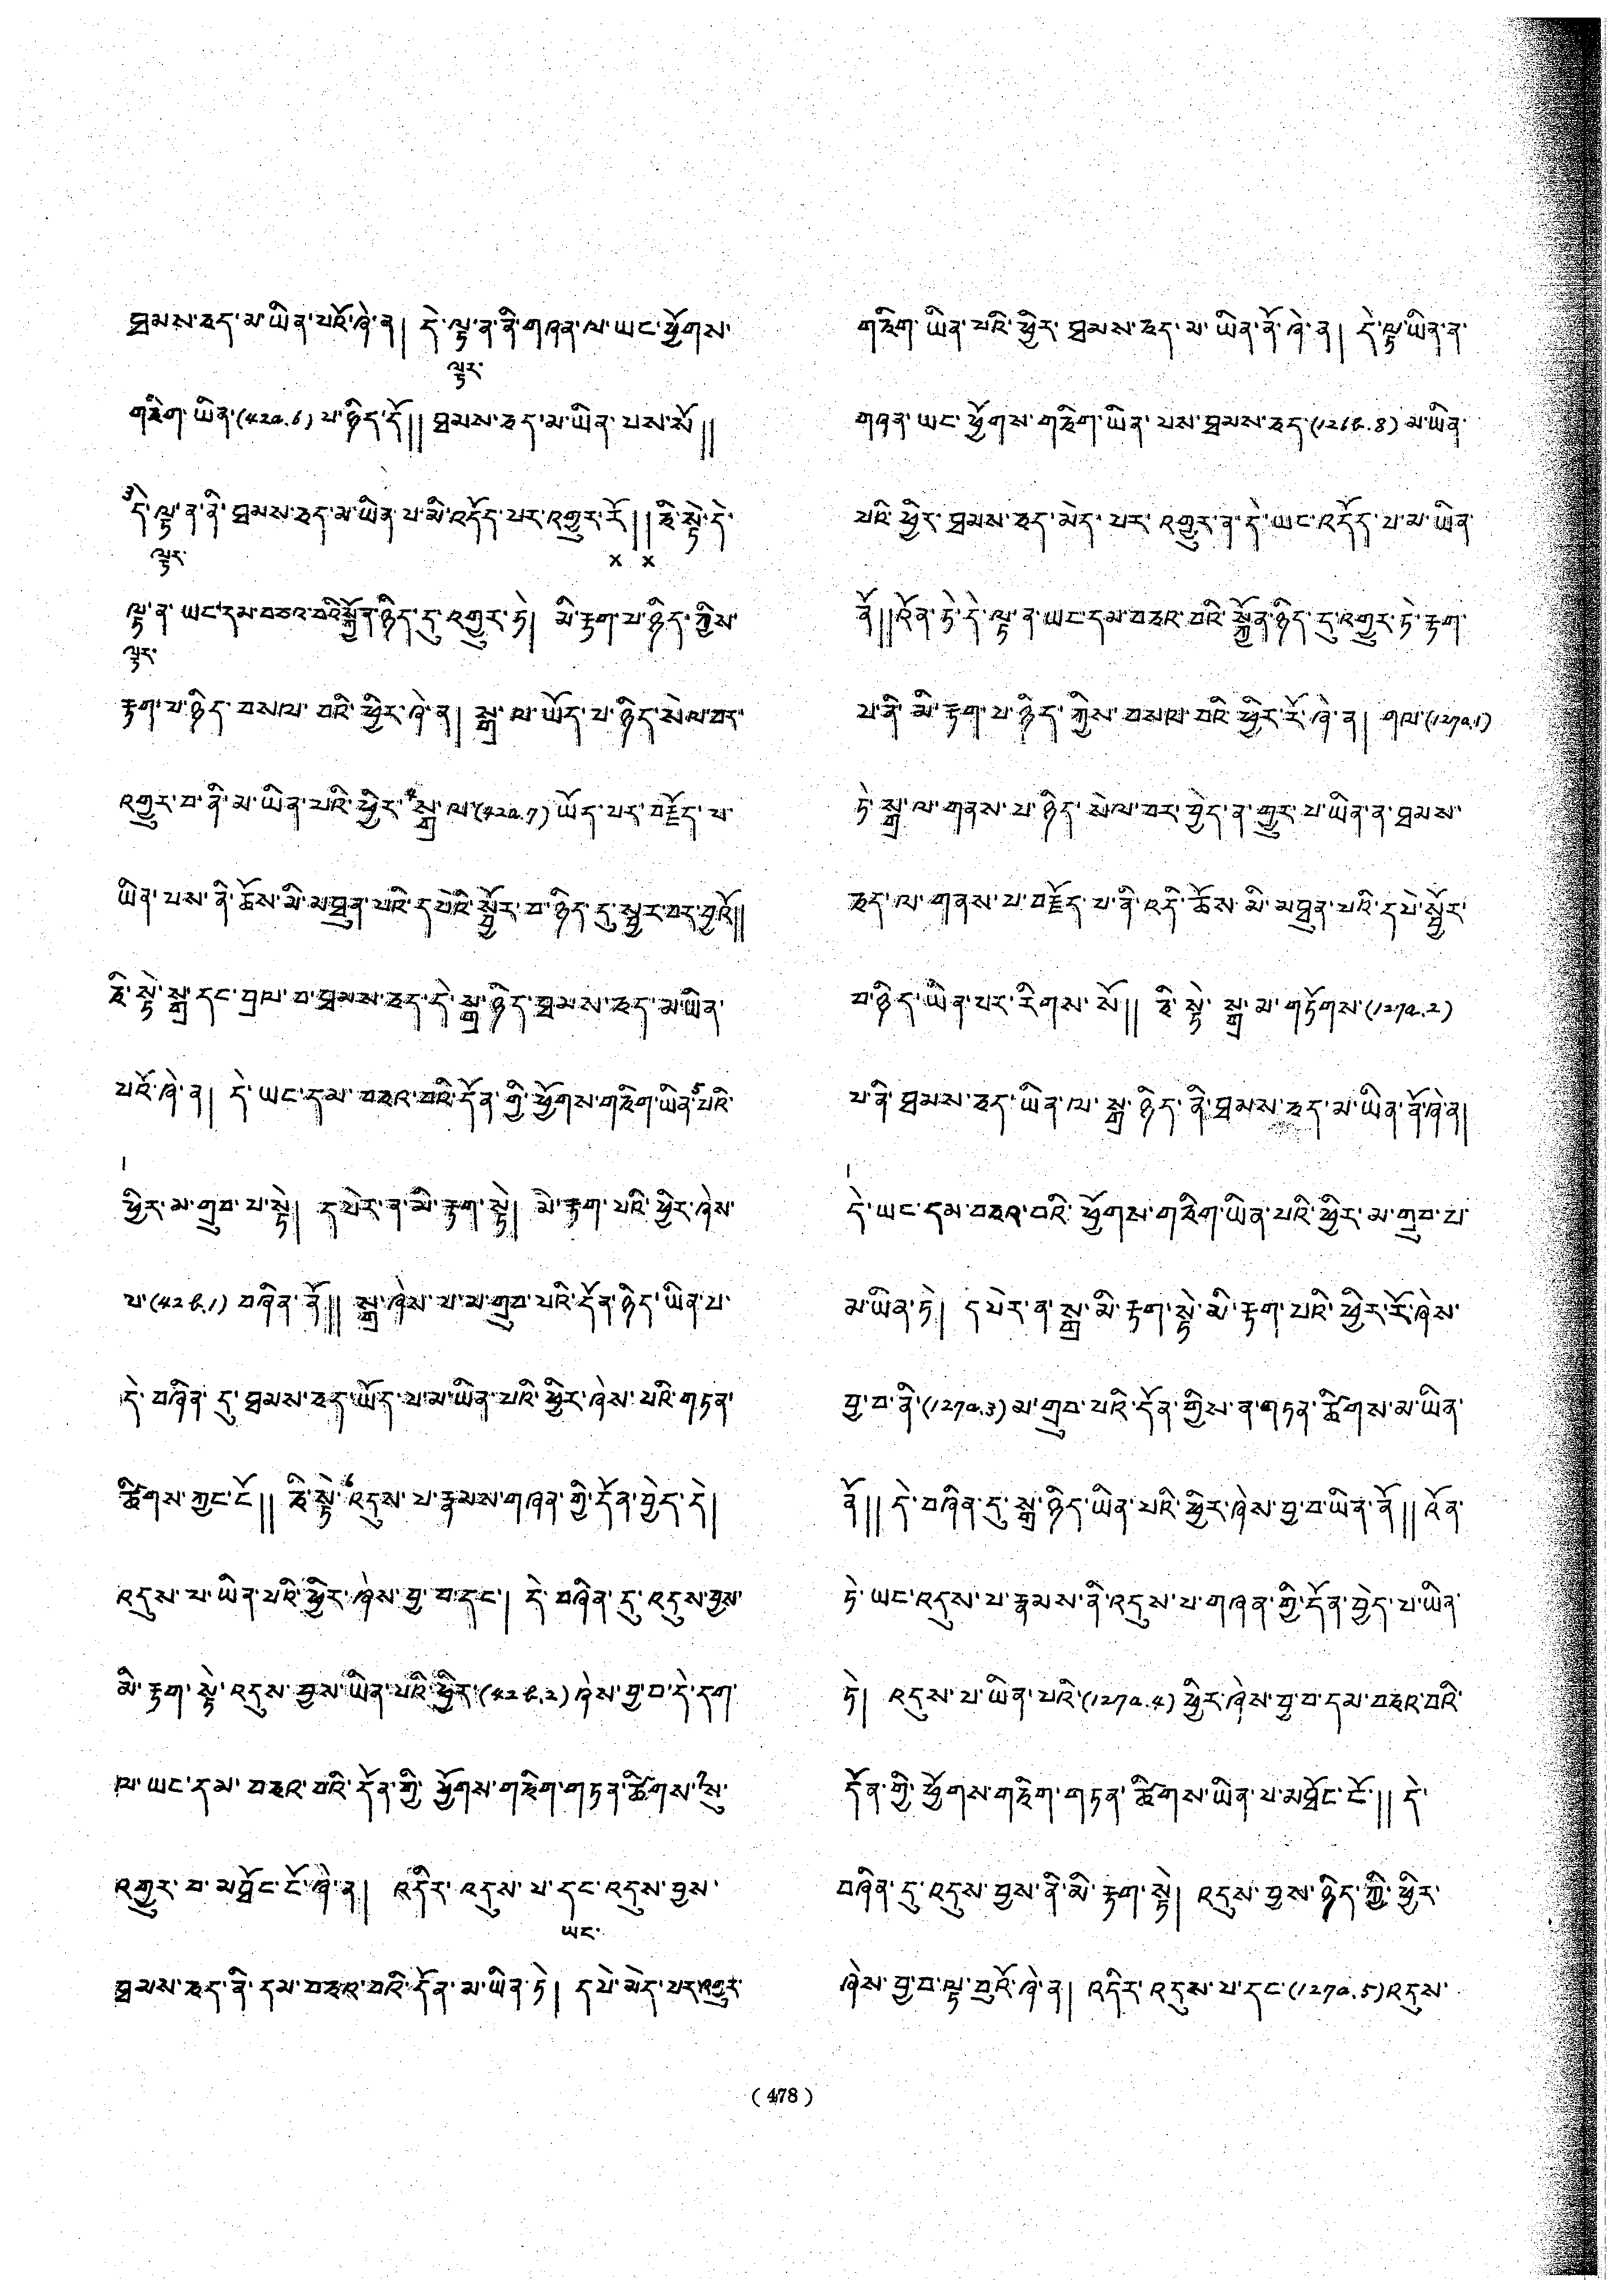 ཐམས་ཅད་མ་ཡིན་པའོ་ཞེ་ན། དེ་ལྟ་ན་ནི་གཞན་ལ་ཡང་ཕྱོགས་
ལྟར་
གཅིག་ཡིན་(42a.6) པ་ཉིད་དོ།། ཐམས་ཅད་མ་ཡིན་པས་སོ།།
3དེ་ལྟ་ན་ནི་ཐམས་ཅད་མ་ཡིན་པ་མི་འདོད་པར་འགྱུར་རོ།།ཅི་སྟེ་དེ་
ལྟར་ x x
ལྟ་ན་ཡང་དམ་བཅའ་བའི་སྐྱོན་ཉིད་དུ་འགྱུར་ཏེ། མི་རྟག་པ་ཉིད་ཀྱིས་
ལྟར་
རྟག་པ་ཉིད་བསལ་བའི་ཕྱིར་ཞེ་ན། སྒྲ་ལ་ཡོད་པ་ཉིད་སེལ་བར་
འགྱུར་བ་ནི་མ་ཡིན་པའི་ཕྱིར་4སྒྲ་ལ་(42a.7) ཡོད་པར་བརྗོད་པ་
ཡིན་པས་ནི་ཆོས་མི་མཐུན་པའི་དཔེའི་སྦྱོར་བ་ཉིད་དུ་སྦྱར་བར་བྱའོ།།
ཅི་སྟེ་སྒྲ་དང་བྲལ་བ་ཐམས་ཅད་དེ་སྒྲ་ཉིད་ཐམས་ཅད་མ་ཡིན་
པའོ་ཞེ་ན། དེ་ཡང་དམ་བཅའ་བའི་དོན་གྱི་ཕྱོགས་གཅིག་ཡིན་5པའི་
།
ཕྱིར་མ་གྲུབ་པ་སྟེ། དཔེར་ན་མི་རྟག་སྟེ། མི་རྟག་པའི་ཕྱིར་ཞེས་
པ་(42b.1) བཞིན་ནོ།། སྒྲ་ཞེས་པ་མ་གྲུབ་པའི་དོན་ཉིད་ཡིན་པ་
དེ་བཞིན་དུ་ཐམས་ཅད་ཡོད་པ་མ་ཡིན་པའི་ཕྱིར་ཞེས་པའི་གཏན་
ཚིགས་ཀྱང་ངོ།། ཅི་སྟེ་6འདུས་པ་རྣམས་གཞན་གྱི་དོན་བྱེད་དེ།
འདུས་པ་ཡིན་པའི་ཕྱིར་ཞེས་བྱ་བ་དང་། དེ་བཞིན་དུ་འདུས་བྱས་
མི་རྟག་སྟེ་འདུས་བྱས་ཡིན་པའི་ཕྱིར་(42b.2) ཞེས་བྱ་བ་དེ་དག་
ལ་ཡང་དམ་བཅའ་བའི་དོན་གྱི་ཕྱོགས་གཅིག་གཏན་ཚིགས་7སུ་
འགྱུར་བ་མཐོང་ངོ་ཞེ་ན། འདིར་འདུས་པ་དང་འདུས་བྱས་
ཡང་
ཐམས་ཅད་ནི་དམ་བཅའ་བའི་དོན་མ་ཡིན་ཏེ། དཔེ་མེད་པར་འགྱུར་
གཅིག་ཡིན་པའི་ཕྱིར་ཐམས་ཅད་མ་ཡིན་ནོ་ཞེ་ན། དེ་ལྟ་ཡིན་ན་
གཞན་ཡང་ཕྱོགས་གཅིག་ཡིན་པས་ཐམས་ཅད་(126b.8) མ་ཡིན་
པའི་ཕྱིར་ཐམས་ཅད་མེད་པར་འགྱུར་ན་དེ་ཡང་འདོད་པ་མ་ཡིན་
ནོ།།འོན་ཏེ་དེ་ལྟ་ན་ཡང་དམ་བཅའ་བའི་སྐྱོན་ཉིད་དུ་འགྱུར་ཏེ་རྟག་
པ་ནི་མི་རྟག་པ་ཉིད་ཀྱིས་བསལ་བའི་ཕྱིར་རོ་ཞེ་ན། གལ་(127a.1)
ཏེ་སྒྲ་ལ་གནས་པ་ཉིད་སེལ་བར་བྱེད་ན་གྱུར་པ་ཡིན་ན་ཐམས་
ཅད་ལ་གནས་པ་བརྗོད་པ་ནི་འདི་ཆོས་མི་མཐུན་པའི་དཔེ་སྦྱོར་
བ་ཉིད་ཡིན་པར་རིགས་སོ།། ཅི་སྟེ་སྒྲ་མ་གཏོགས་(127a.2)
པ་ནི་ཐམས་ཅད་ཡིན་ལ་སྒྲ་ཉིད་ནི་ཐམས་ཅད་མ་ཡིན་ནོ་ཞེ་ན།
།
དེ་ཡང་དམ་བཅའ་བའི་ཕྱོགས་གཅིག་ཡིན་པའི་ཕྱིར་མ་གྲུབ་པ་
མ་ཡིན་ཏེ། དཔེར་ན་སྒྲ་མི་རྟག་སྟེ་མི་རྟག་པའི་ཕྱིར་རོ་ཞེས་
བྱ་བ་ནི་(127a.3) མ་གྲུབ་པའི་དོན་གྱིས་ན་གཏན་ཚིགས་མ་ཡིན་
ནོ།། དེ་བཞིན་དུ་སྒྲ་ཉིད་ཡིན་པའི་ཕྱིར་ཞེས་བྱ་བ་ཡིན་ནོ།། འོན་
ཏེ་ཡང་འདུས་པ་རྣམས་ནི་འདུས་པ་གཞན་གྱི་དོན་བྱེད་པ་ཡིན་
ཏེ། འདུས་པ་ཡིན་པའི་(127a.4) ཕྱིར་ཞེས་བྱ་བ་དམ་བཅའ་བའི་
དོན་གྱི་ཕྱོགས་གཅིག་གཏན་ཚིགས་ཡིན་པ་མཐོང་ངོ་།། དེ་
བཞིན་དུ་འདུས་བྱས་ནི་མི་རྟག་སྟེ། འདུས་བྱས་ཉིད་ཀྱི་ཕྱིར་
ཞེས་བྱ་བ་ལྟ་བུའོ་ཞེ་ན། འདིར་འདུས་པ་དང་(127a.5)འདུས་
(478)